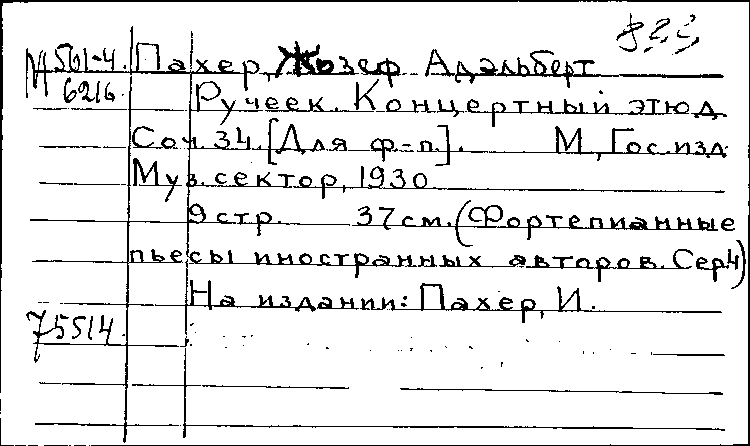 М 561-4
6216
Пахер, Жозеф Адальберт
Ручеек. Концертный этюд
Соч. 34. [Для ф-п.]. М., Гос. изд
Муз. сектор, 1930
9 стр. 37 см. (Фортепианные
пьесы иностранных авторов. Сер 4)
На издании: Пахер, И.
75514